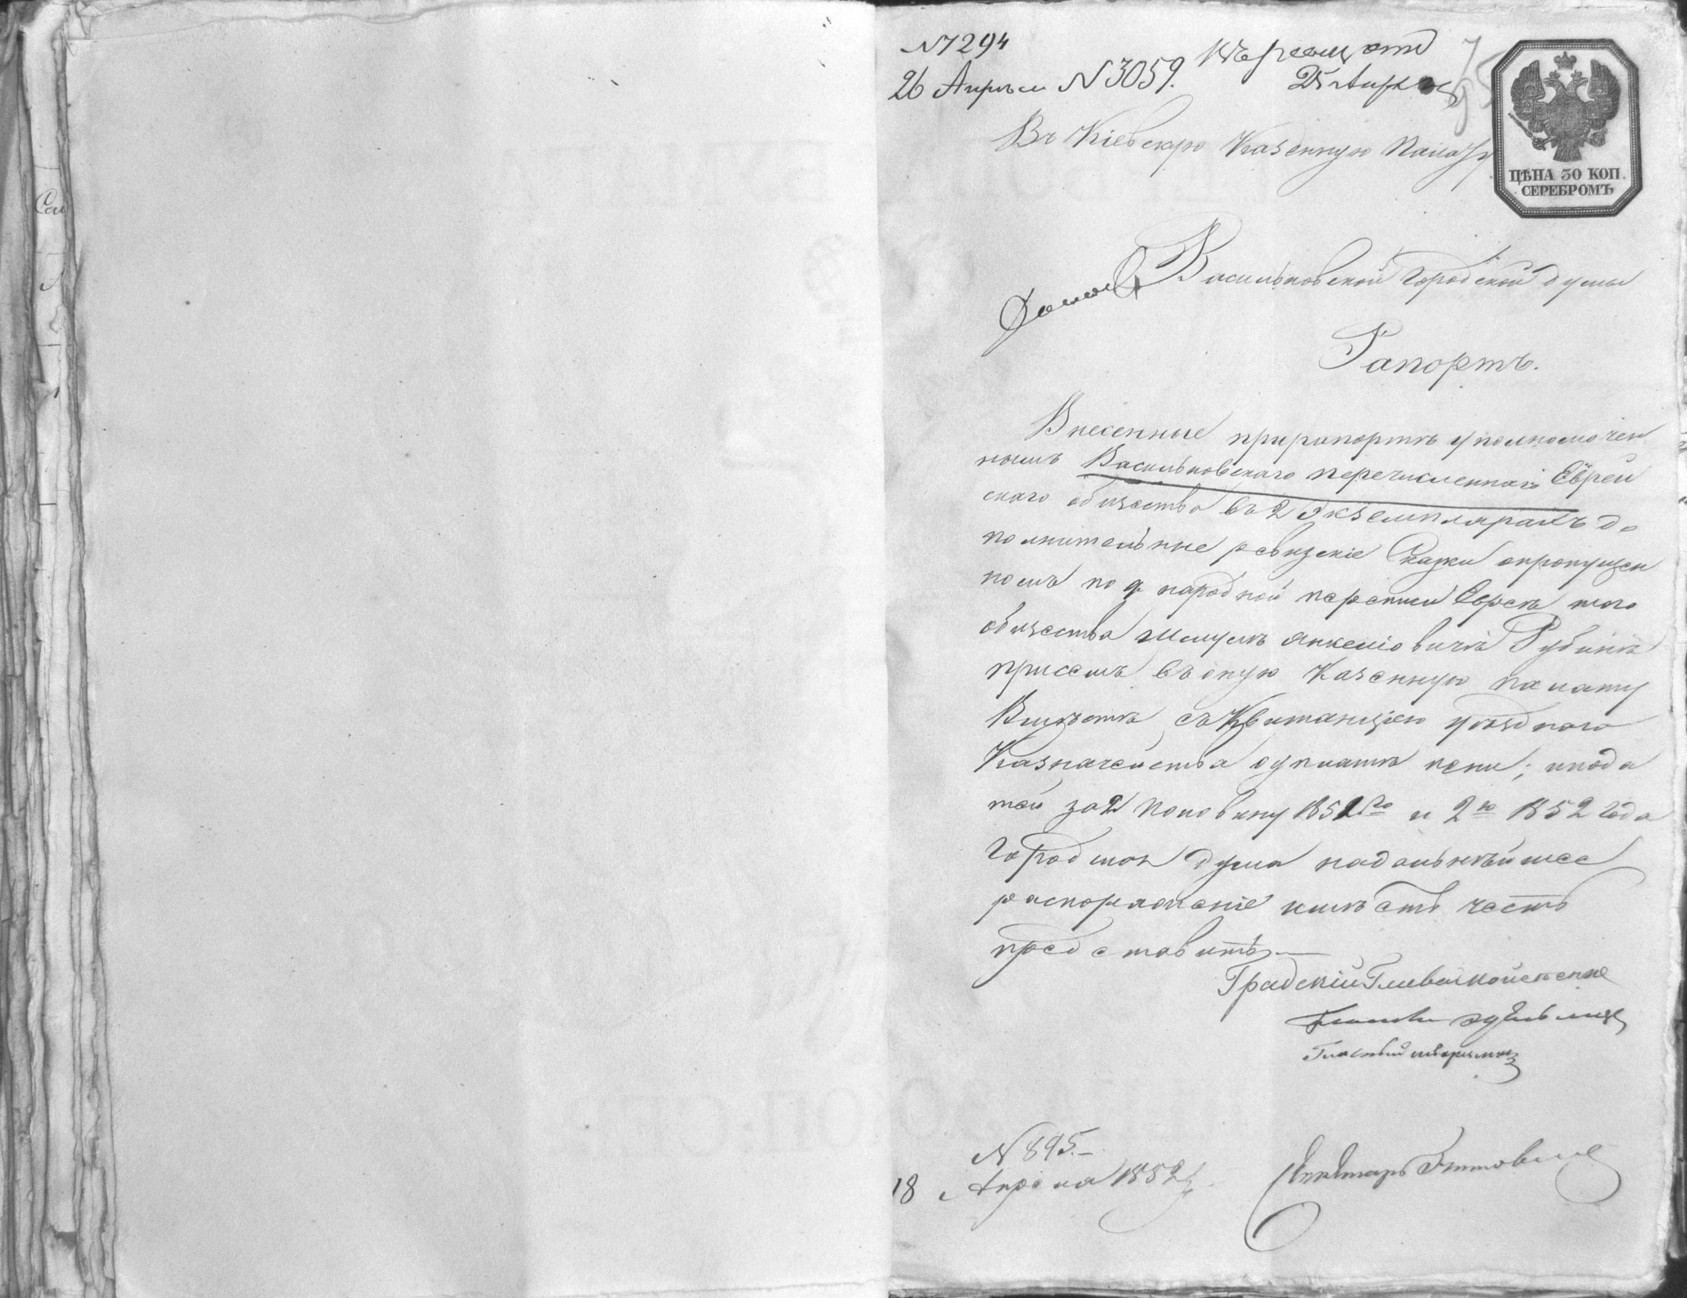 № 7294
26 Апрѣля № 3059.
25 Апр
Въ Кіевскую Казенную Палату
ЦѢНА 30 КОП.
СЕРЕБРОМЪ
Васильковской Городской думы
Рапортъ.
Внесенные при рапортѣ уполномочен
нымъ Васильковскаго перечисленнаго Еврей
скаго общества въ 2 экземплярахъ до
полнительные ревизскіе Сказки опропущен
номъ по 9 народной переписи Евреѣ того
общества Шмулѣ Янкеліовичѣ Рубинѣ
присемъ въ оную Казенную палату
Вмѣстѣ съ Квитанціею уѣзднаго
Казначейства оуплатѣ пени; ипода
тей за 2 половину 1851го и 2ю 1852 года
Городская дума надальнѣйшее
распоряженіе имѣетъ честь
представить.
Градскій Глава
Гласный
№ 895.
18 Апрѣля 1852 г.
Секретарь